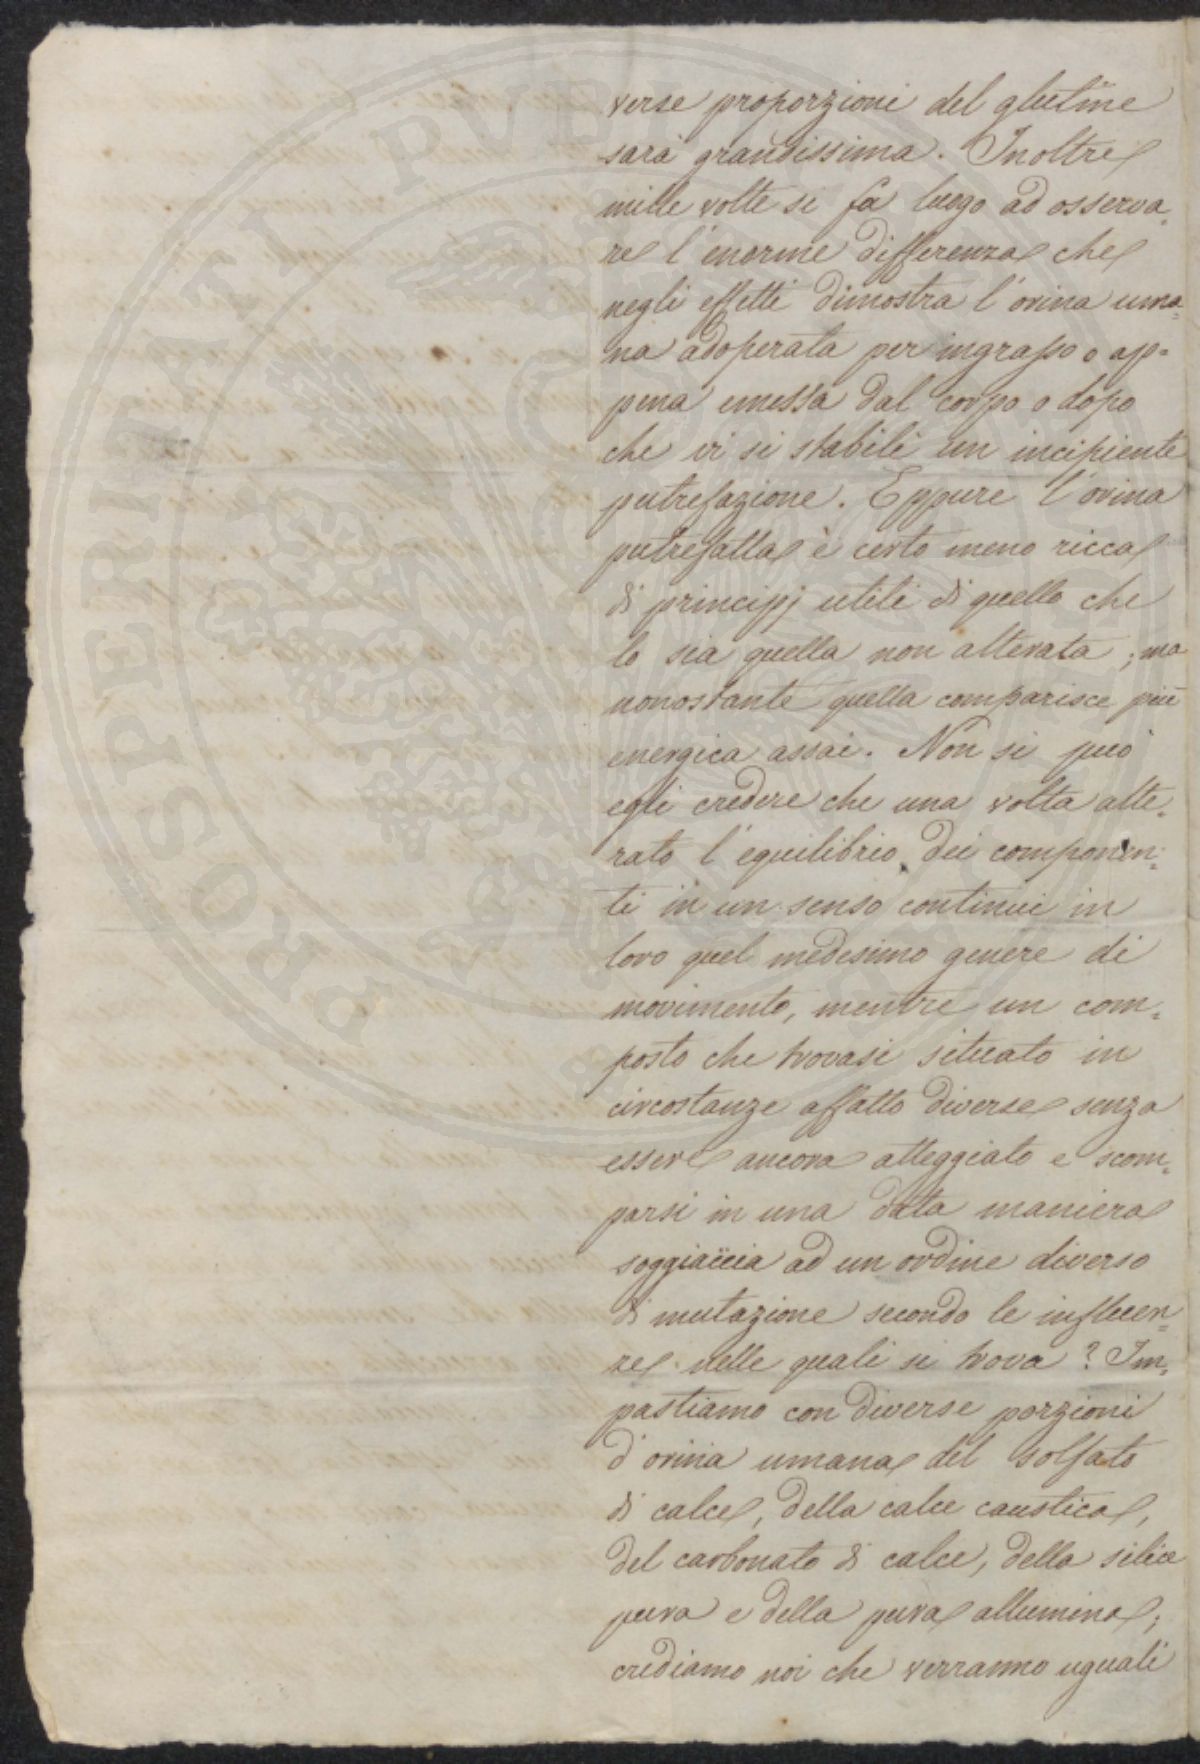 verse proporzioni del glutine
sarà grandissima. Inoltre
mille volte si fa luogo ad osserva=
re l'enorme differenza che
negli effetti dimostra l'orina uma=
na adoperata per ingrasso o ap=
pena emessa dal corpo o dopo
che vi si stabilì un incipiente
putrefazione. Eppure l'orina
putrefatta è certo meno ricca
di principj utili di quello che
lo sia quella non alterata; ma
nonostante quella comparisce più
energica assai. Non si può
egli credere che una volta alte=
rato l'equilibrio dei componen=
ti in un senso continui in
loro quel medesimo genere di
movimento, mentre un com=
posto che trovasi situato in
circostanze affatto diverse senza
essere ancora atteggiato e scom=
parsi in una data maniera
soggiaccia ad un ordine diverso
di mutazione secondo le influen=
ze nelle quali si trova? Im=
pastiamo con diverse porzioni
d'orina umana del solfato
di calce, della calce caustica,
del carbonato di calce, della silice
pura e della pura allumina;
crediamo noi che verranno uguali
PROSPERITATI PVBLICAE